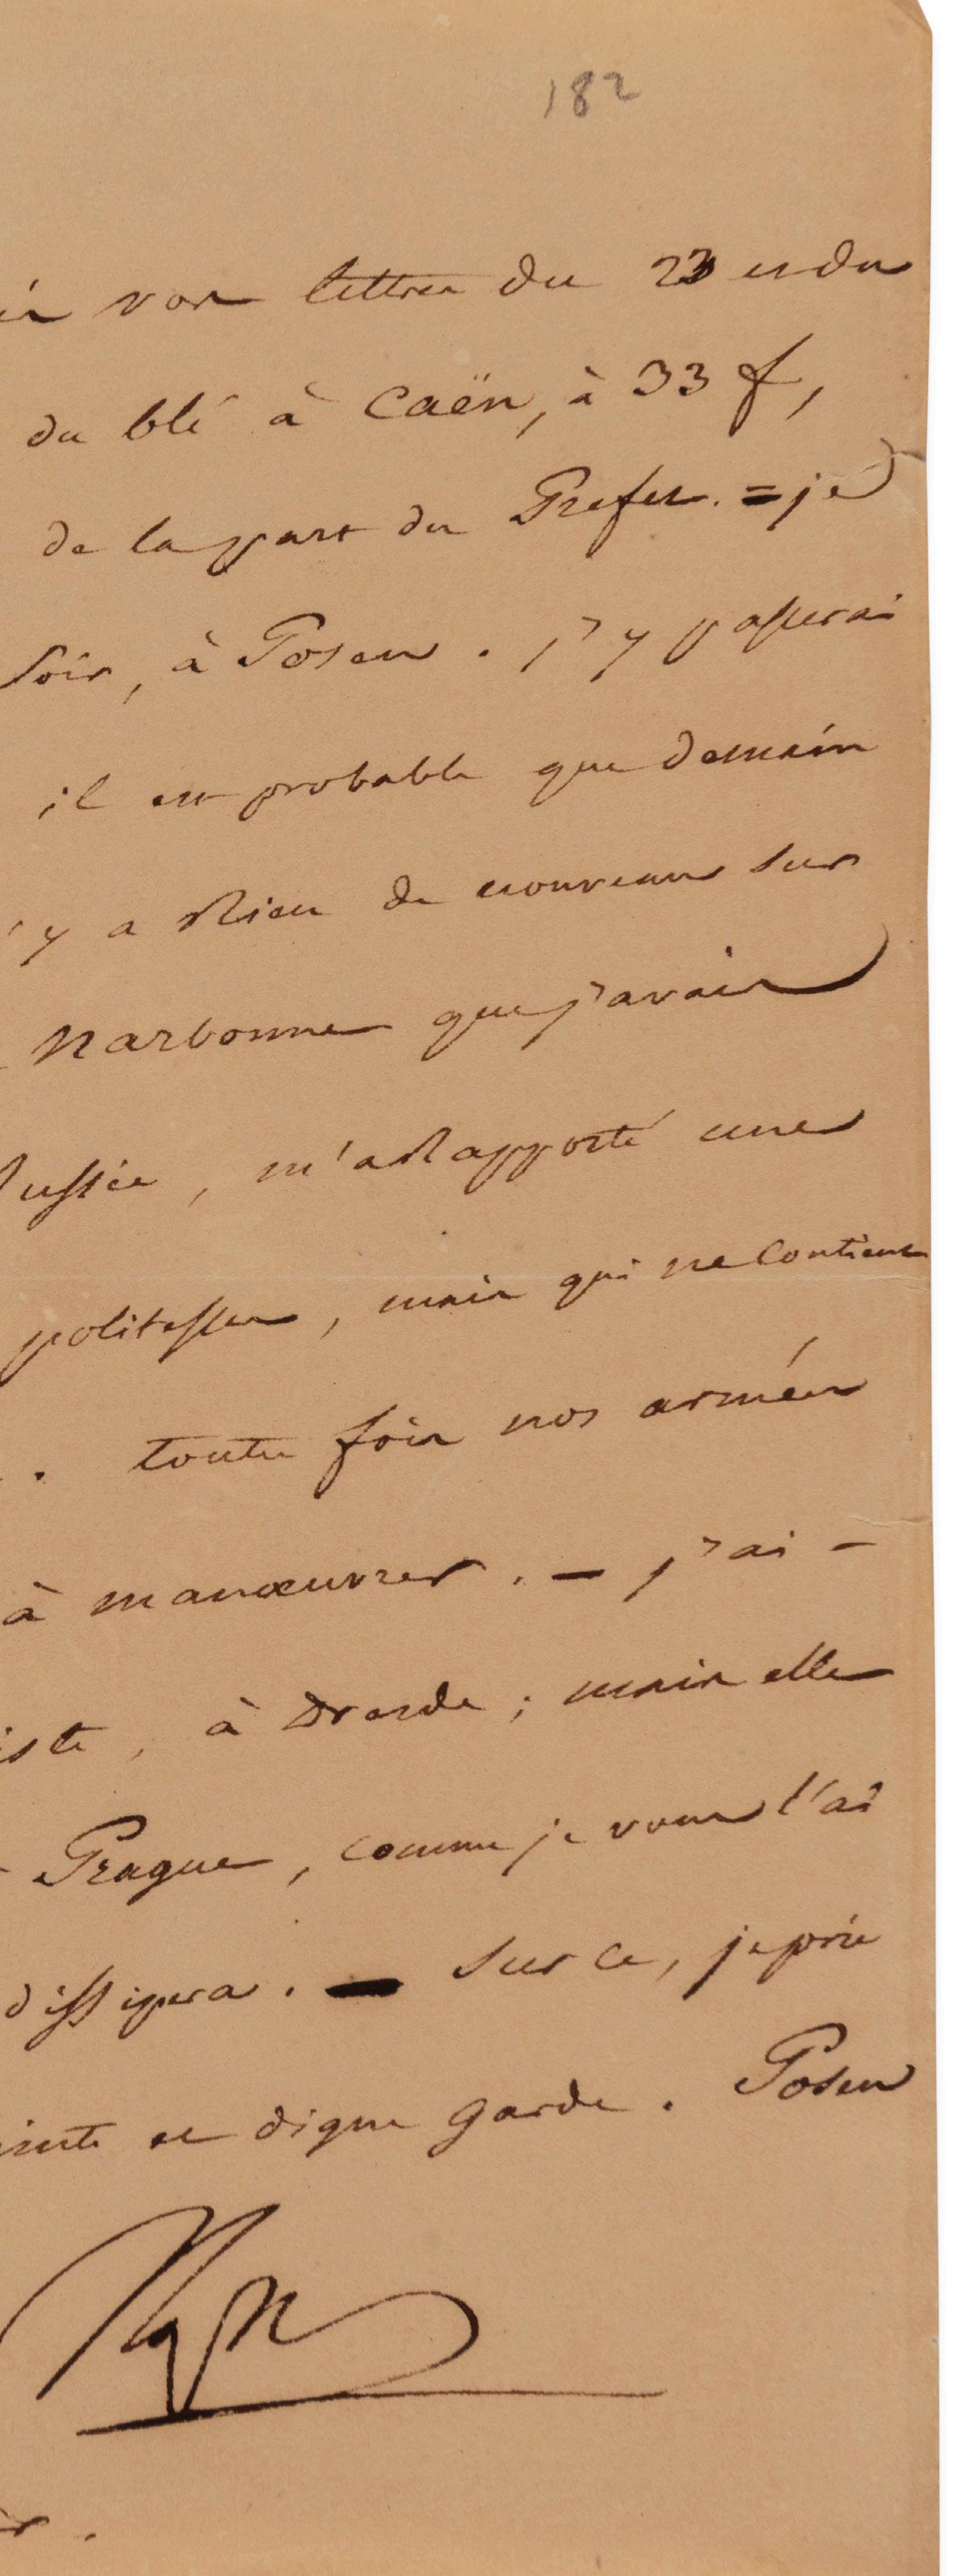 182
vos lettres du 23 et du
du blé à Caën, à 33 f,
de la part du Préfet. = je
soir, à Posen. j'y passerai
il est probable que demain
y a Rien de nouveau sur
Narbonne que j'avais
Russie, m'a Rapporté une
politesses, mais qui ne contient
. toutes fois nos armées
à manœuvrer. — j'ai —
iste, à Dresde ; mais elle
Prague, comme je vous l'ai
dissipera. — Sur ce, je prie
inte et digne garde. Posen
Np